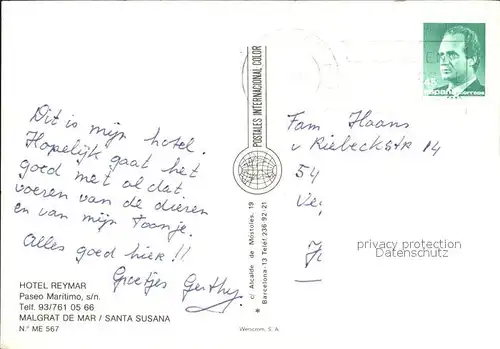 Dit is mijn hotel.
Hopelijk gaat het
goed met al dat
voeren van de dieren
en van mijn Toontje.
Alles goed hier!!
Groetjes Gerthy.
HOTEL REYMAR
Paseo Marítimo, s/n.
Telf. 93/761 05 66
MALGRAT DE MAR / SANTA SUSANA
N.º ME 567
POSTALES INTERNACIONAL COLOR
c/ Alcalde de Móstoles, 19
* Barcelona-13 Telef. 236-92-21
Werocrom, S. A.
45
España correos
Fam Haans
v Riebeckstr 14
54
Ve
privacy protection
Datenschutz